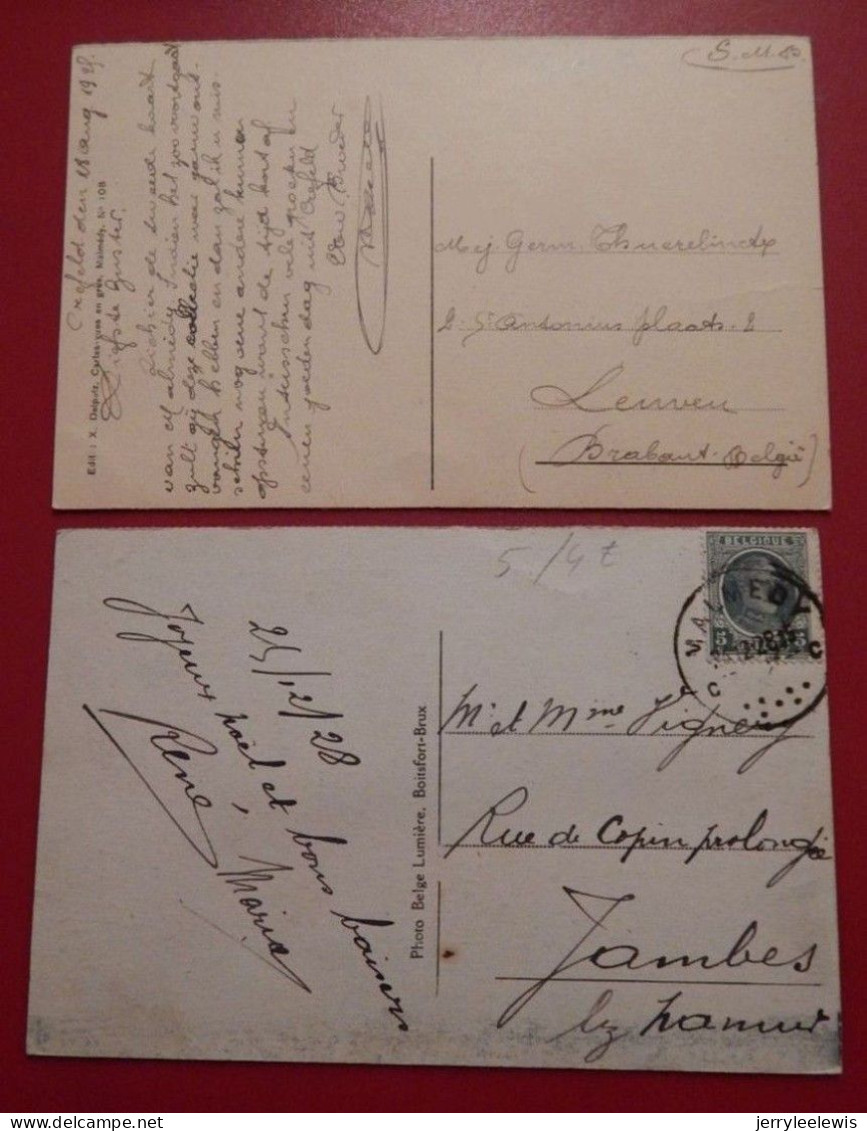 S.M.B.
Crefeld den 18 aug 192
Liefste Zuster.
Ziehier de tweede kaart
van Malmédy. Indien het zoo voortgaat
zult gij deze collectie van gauw ont-
vangen hebben en dan zal ik u mis-
schien nog eene andere kunnen
opsturen want de tijd kort af
Intusschen vele groeten en
eenen goeden dag uit Crefeld
Uw Broeder
Edit : X. Delputz, Cartes-vues en gros, Malmedy, Nº 108
Mej. Germ. Thuerelinckx
2. St Antonius plaats. 2
Leuven
(Brabant-België)
5/4t
BELGIQUE
5
MALMEDY
C C
25/12/28
Joyeux noël et bons baisers
René, Maria
Photo Belge Lumière, Boitsfort-Brux
Mr et Mme Vignery
Rue de Copin prolongée
Jambes
lez Namur
delcampe.net
jerryleelewis